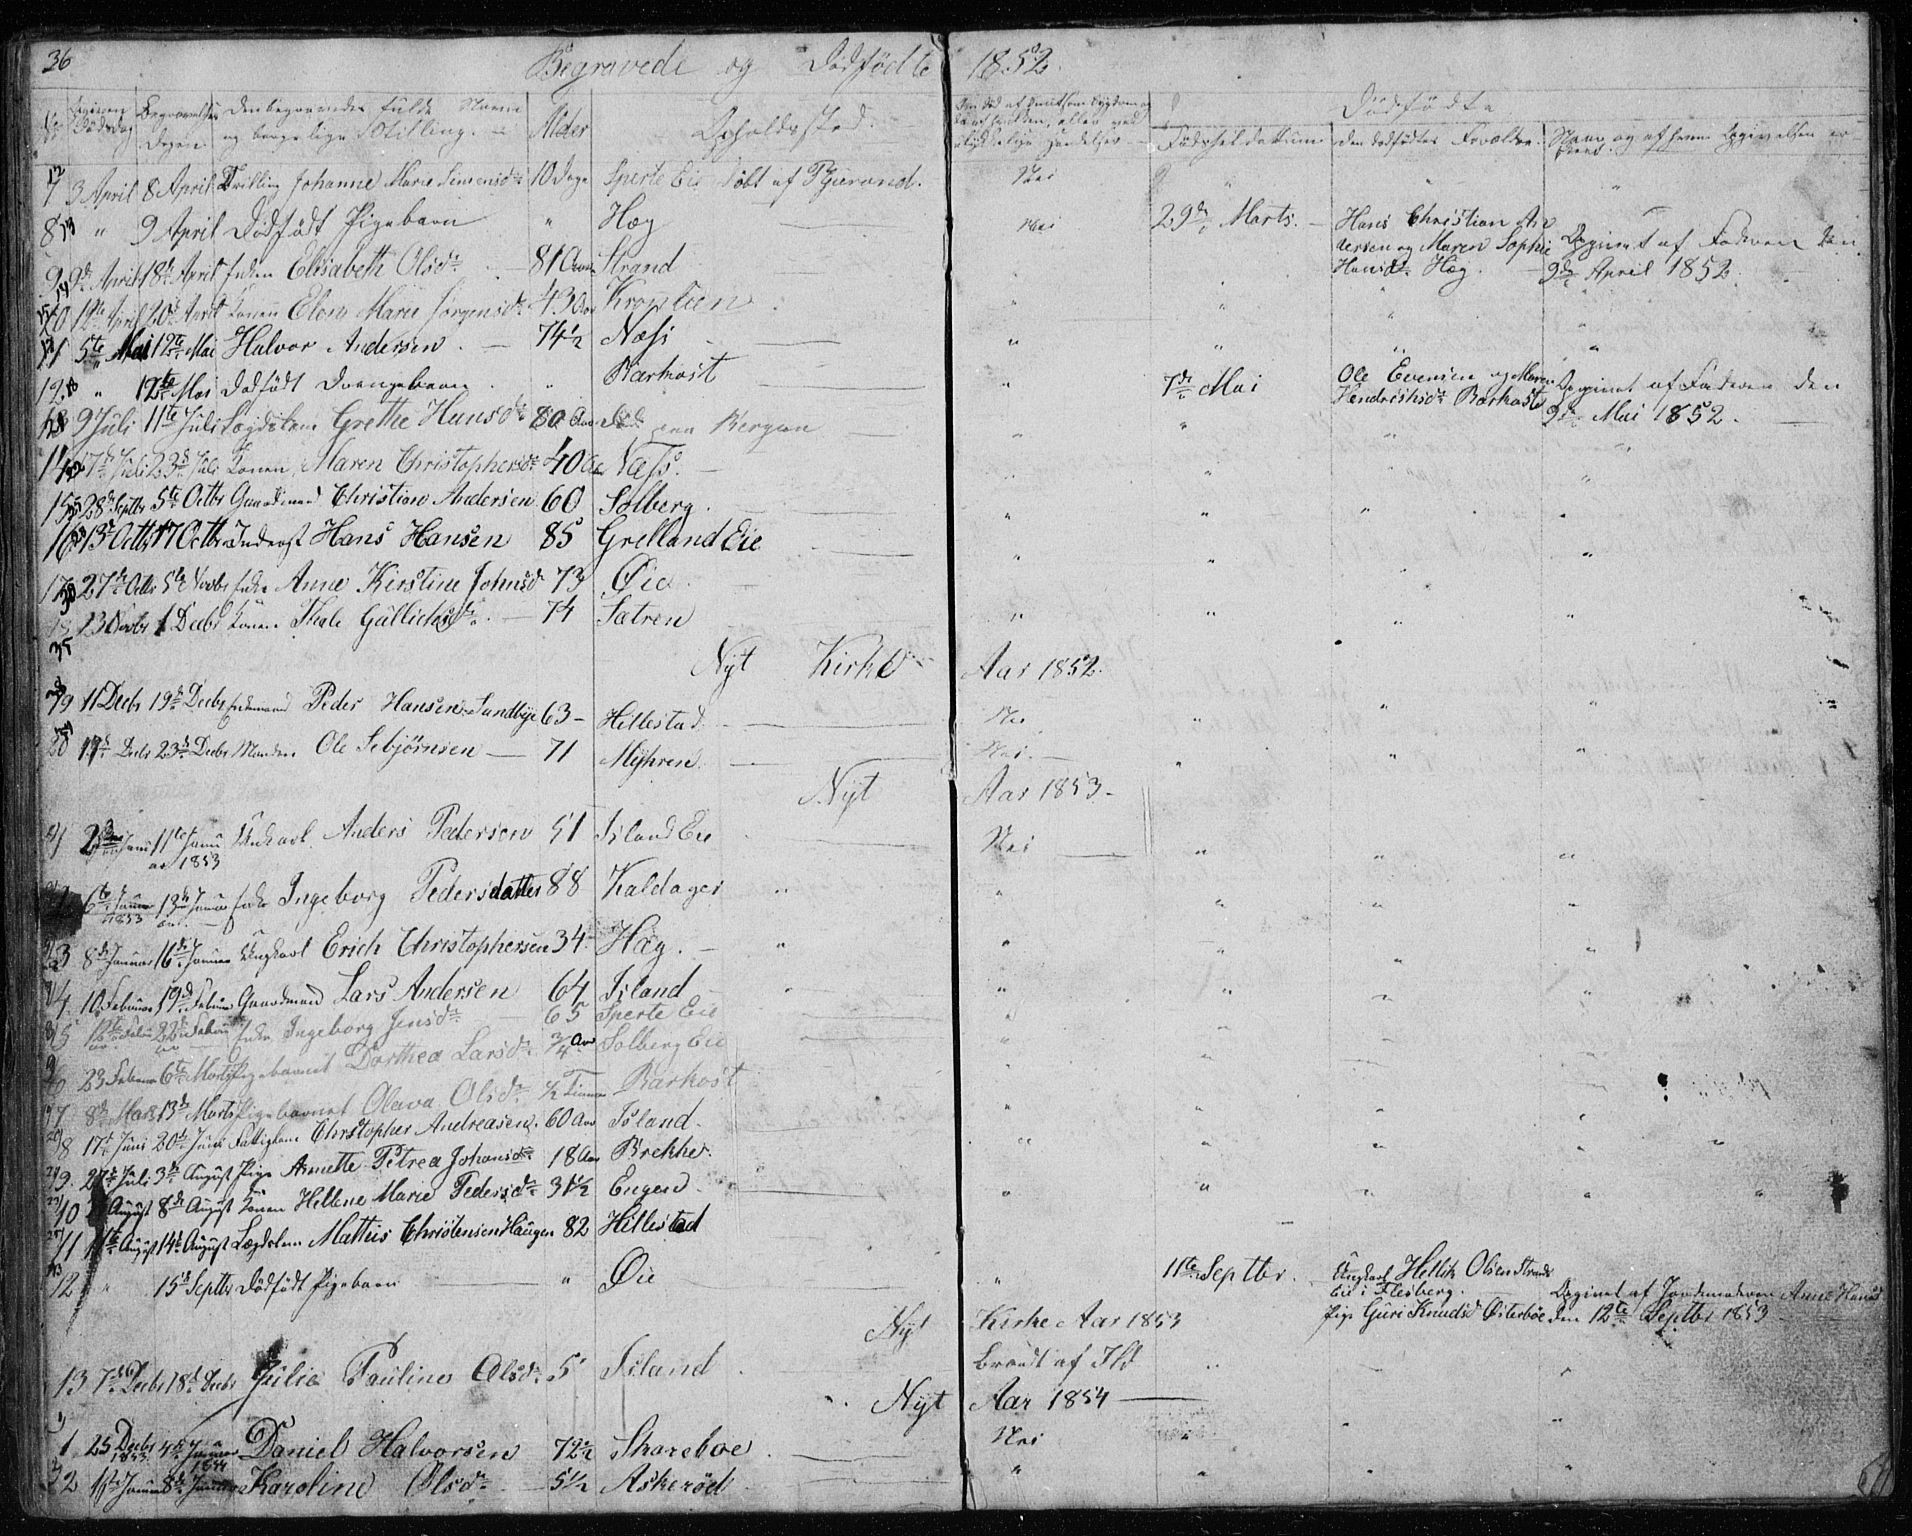 36 Begravede og Dødfødte 1852.
Dødfødte
Dødsdag Begravelses Dagen Den begravedes fulde Navn og borgerlige Stilling. Alder Opholdssted.
Fødselsdatum den dødfødtes Forældre.
7 3 April 8 April Trilling Johanne Marie Simensdr 10 Dage Sperte Eie døbt af Nei
8 " 9 April Dødfødt Pigebarn " Hæg Nei 29de Marts. Hans Christian Andersen og Maren Sophie Hansdr Hæg. Opgivet af Faderen den 9de April 1852.
9 9de April 18de April Enken Elisabeth Olsdr 81 Aar Strand
10 12te April 20de April Konen Elene Marie Jørgensdr 43 Aar
11 5te Mai 12te Mai Halvor Andersen 74½ Næss
12 " 12te Mai Dødfødt Drengebarn " Barkost " 7de Mai Ole Evensen og Maren Hendrichsdr Barkost Opgivet af Faderen den 9de Mai 1852.
13 9 Juli 11te Juli Lægdslem Grethe Hansdr 80 Aar
14 17de Juli 23de Juli Konen Maren Christophersdr 40 Aar Næss.
15 28de Septbr 5te Octbr Gaardmand Christian Andersen 60 Solberg
16 13de Octbr 17 Octbr Inderst Hans Hansen 85 Grelland Eie
17 27de Octbr 5te Novbr Enke Anne Kirstine Johnsd 73 Øie
18 23 Novbr 1 Decbr Konen Gullichsdr 74 Sætren
Nyt Kirke Aar 1852.
19 11 Decbr 19de Decbr Enkemand Peder Hansen Sundbye 63 Hillestad Nei
20 17de Decbr 23de Decbr Manden Ole Sebjørnsen 71 Myhren. Nei
Nyt Aar 1853
1 2 Januar 11te Januar 1853 Ungkarl Anders Pedersen 51 Island Eie Nei
2 6te Januar 1853 13de Januar Enke Ingeborg Pedersdatter 88 Kaldager
3 8de Januar 16de Januar Ungkarl Erich Christophersen 34 Hæg.
4 10 Februar 19de Februar Gaardmand Lars Andersen 64 Island
5 12te Februar 22de Februar Enke Ingeborg Jensdr 65 Sperte Eie
6 23 Februar 6te Marts Pigebarnet Dorthea Larsdr ¾ Aar Solberg Eie
7 8de Marts 13de Marts Pigebarnet Olava Olsdr ½ Time Barkost
8 17de Juni 20de Juni Fattiglem Christopher Andreasen. 60 Aar Island
9 27de Juli 3de August Pige Annette Petrea Johansdr 18 Aar Brekke.
10 August 8de August Konen Hellene Marie Pedersdr 31½ Engen
11 11te August 14de August Lægdslem Mathis Christensen Haugen 82 Hillestad
12 " 15de Septbr Dødfødt Pigebarn " Øie " 11te Septbr. Ungkarl Hellik Olsen Strands Eie i Flesberg. Pige Guri Knudsd Østerbøe Opgivet af Jordemoderen Anne Hansd den 12te Septbr 1853
Nyt Kirke Aar 1853
13 7de Decbr 18de Decbr Julia Pauline Olsdr 5 Island Brændt af Ild
Nyt Aar 1854
1 25 Decbr 1853 4de Januar Daniel Halvorsen 72½ Skareboe Nei
2 1ste Januar 8de Januar Karoline Olsdr 5½ Askerød